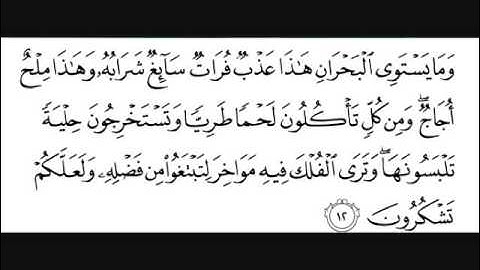 وَمَا يَسْتَوِى ٱلْبَحْرَانِ هَٰذَا عَذْبٌ فُرَاتٌ سَآئِغٌ شَرَابُهُۥ وَهَٰذَا مِلْحٌ
أُجَاجٌ ۖ وَمِن كُلٍّ تَأْكُلُونَ لَحْمًا طَرِيًّا وَتَسْتَخْرِجُونَ حِلْيَةً
تَلْبَسُونَهَا ۖ وَتَرَى ٱلْفُلْكَ فِيهِ مَوَاخِرَ لِتَبْتَغُوا۟ مِن فَضْلِهِۦ وَلَعَلَّكُمْ
تَشْكُرُونَ ١٢